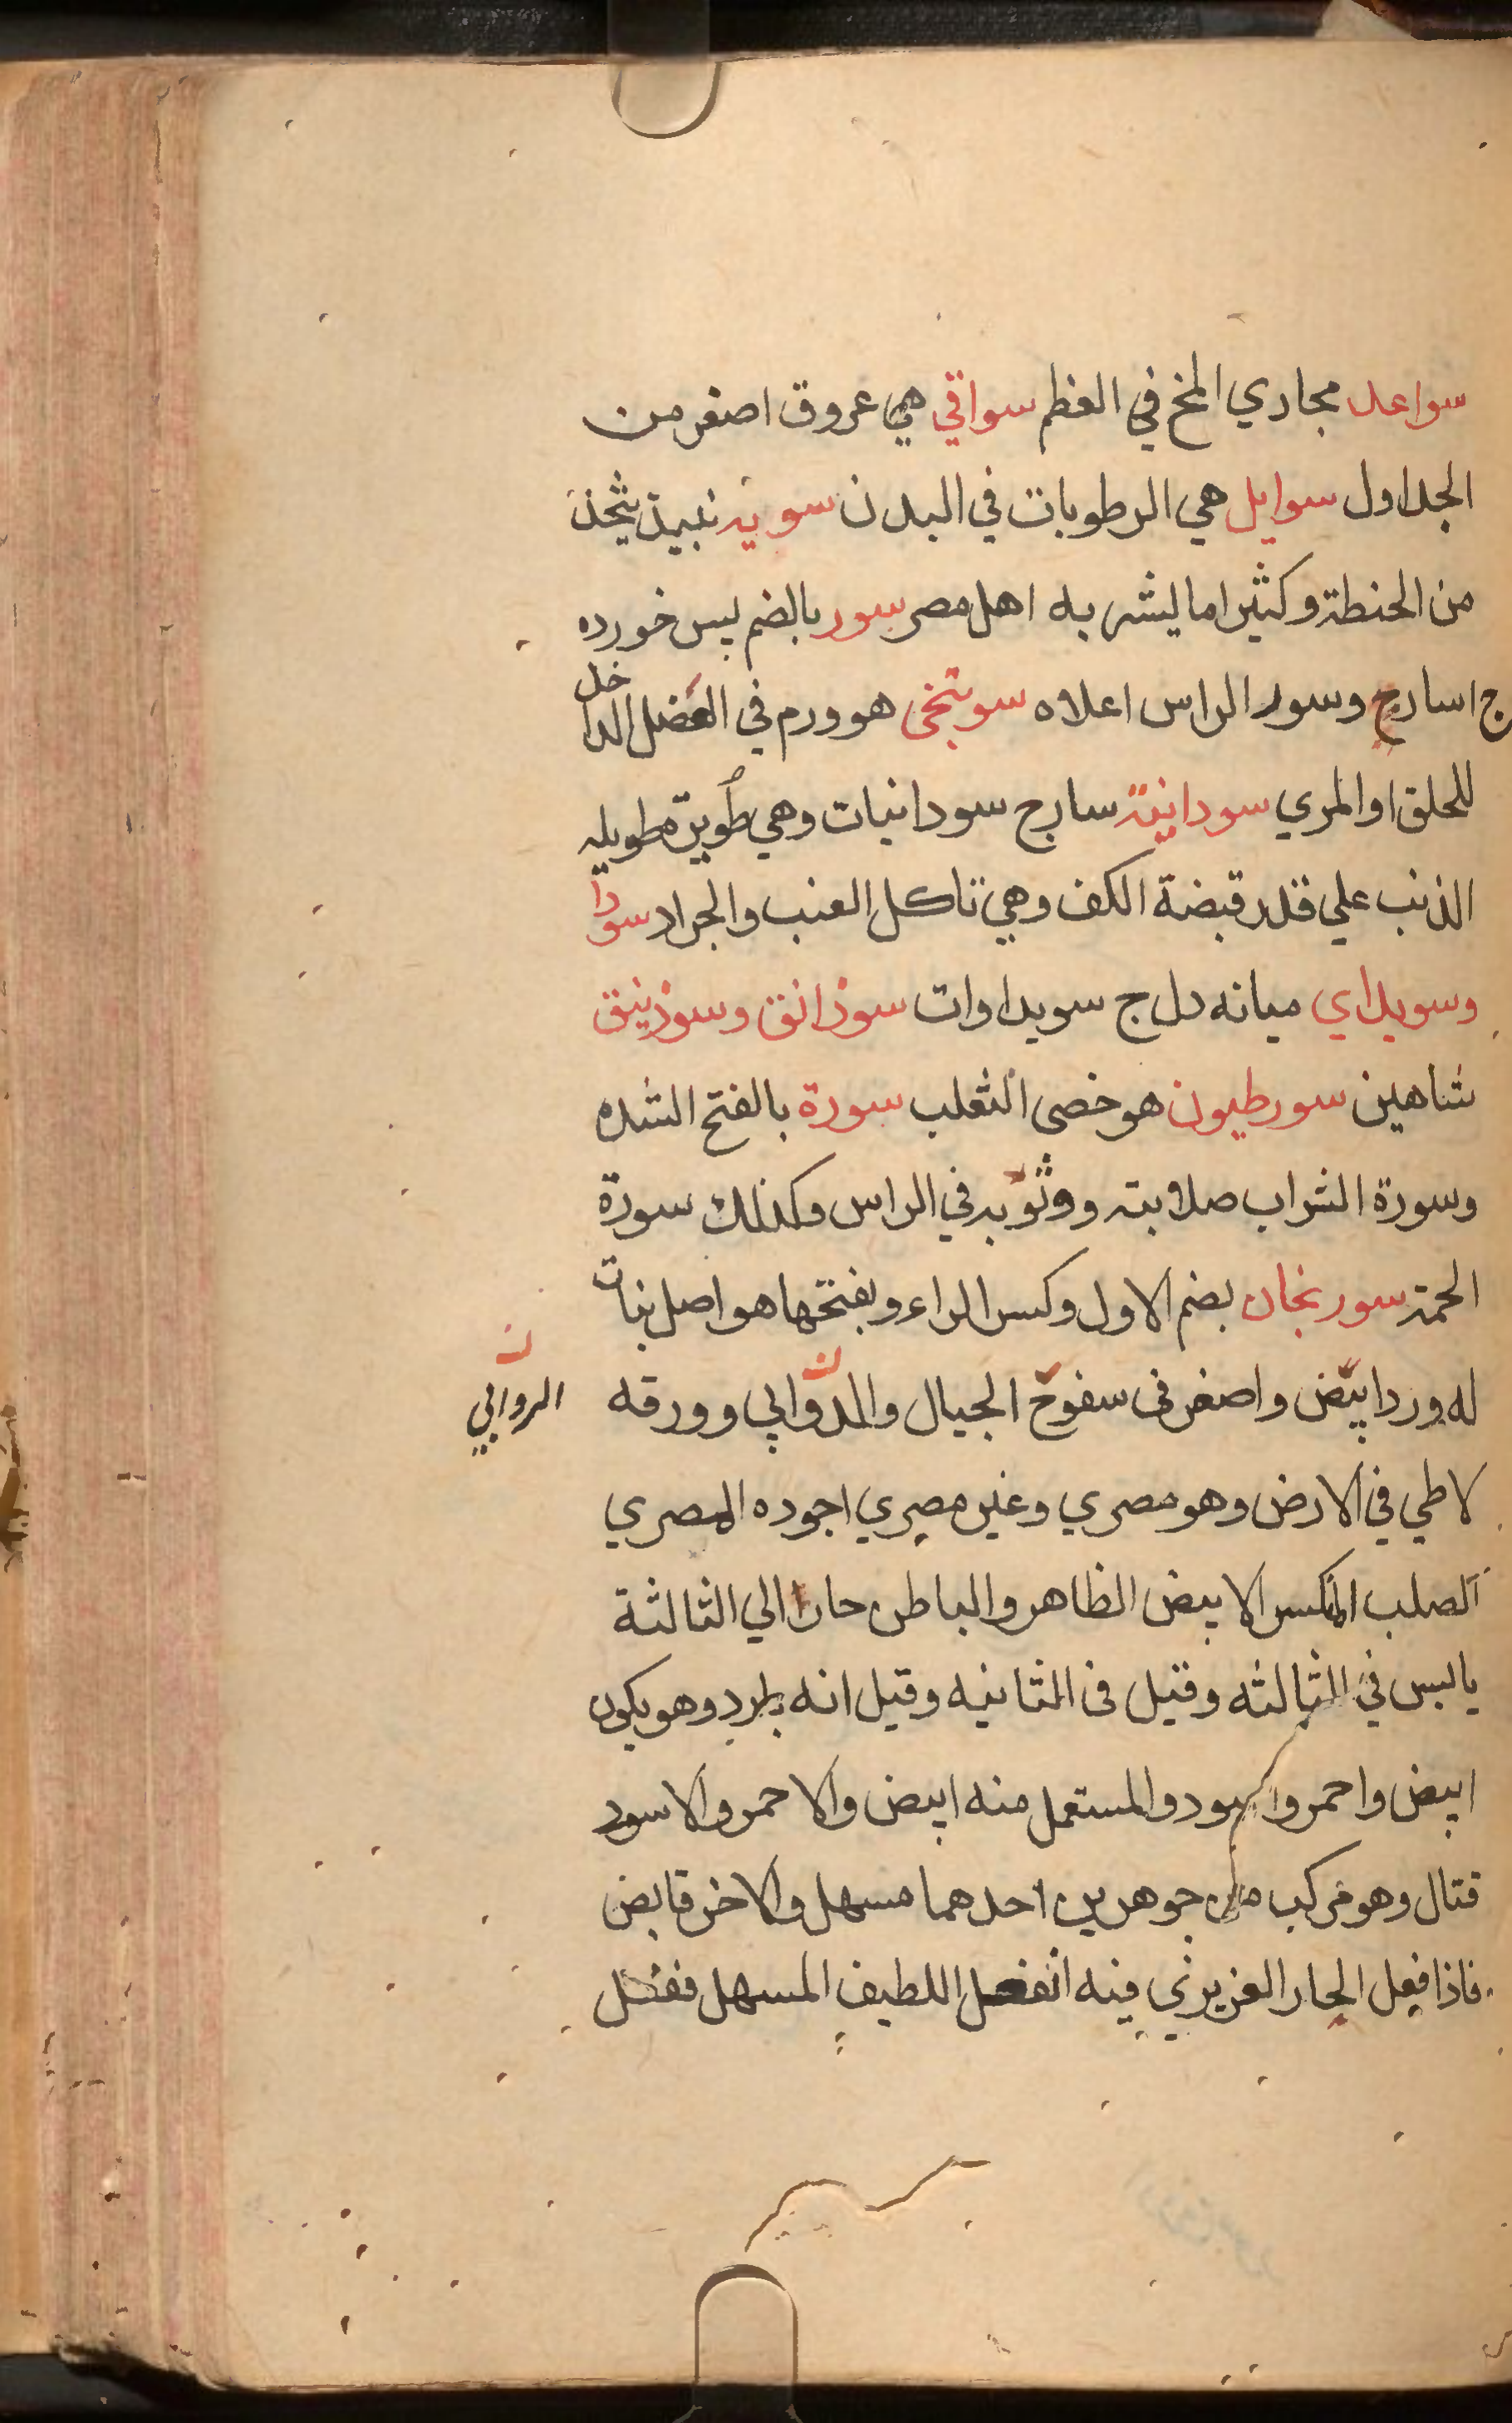 سواعد مجاري المخ في العظم سواقي هي عروق اصغر من
الجداول سوايل هي الرطوبات في البدن سوية نبيذ يتخذ
من الحنطة وكثيرا ما يشربه اهل مصر سور بالضم پس خورده
ج اسارج وسور الراس اعلاه سوتنخى هو ورم في العضل الداخل
للحلق او المري سودانية سارج سودانيات وهي طويرة طويله
الذنب علي قدر قبضة الكف وهي تاكل العنب والجراد سودا
وسويداي ميانه دل ج سويداوات سوذانق وسوذنيق
شاهين سورطيون هو خصى الثعلب سورة بالفتح الشده
وسورة الشراب صلابته ووثوبه في الراس وكذلك سورة
الحمة سورنجان بضم الاول وكسر الراء وبفتحها هو اصل نبات
له ورد ابيض واصفر فى سفوح الجبال والدوابي وورقه
ن الروابي
لاطي في الارض وهو مصري وغير مصري اجوده المصري
الصلب المكسر الابيض الظاهر والباطن حار الي الثالثة
يابس في الثالثه وقيل فى الثانيه وقيل انه بارد وهو يكون
ابيض واحمر واسود والمستعمل منه ابيض والاحمر والاسود
قتال وهو مركب من جوهرين احدهما مسهل والاخر قابض
فاذا فعل الحار الغريزي فيه انفصل اللطيف المسهل ففعل